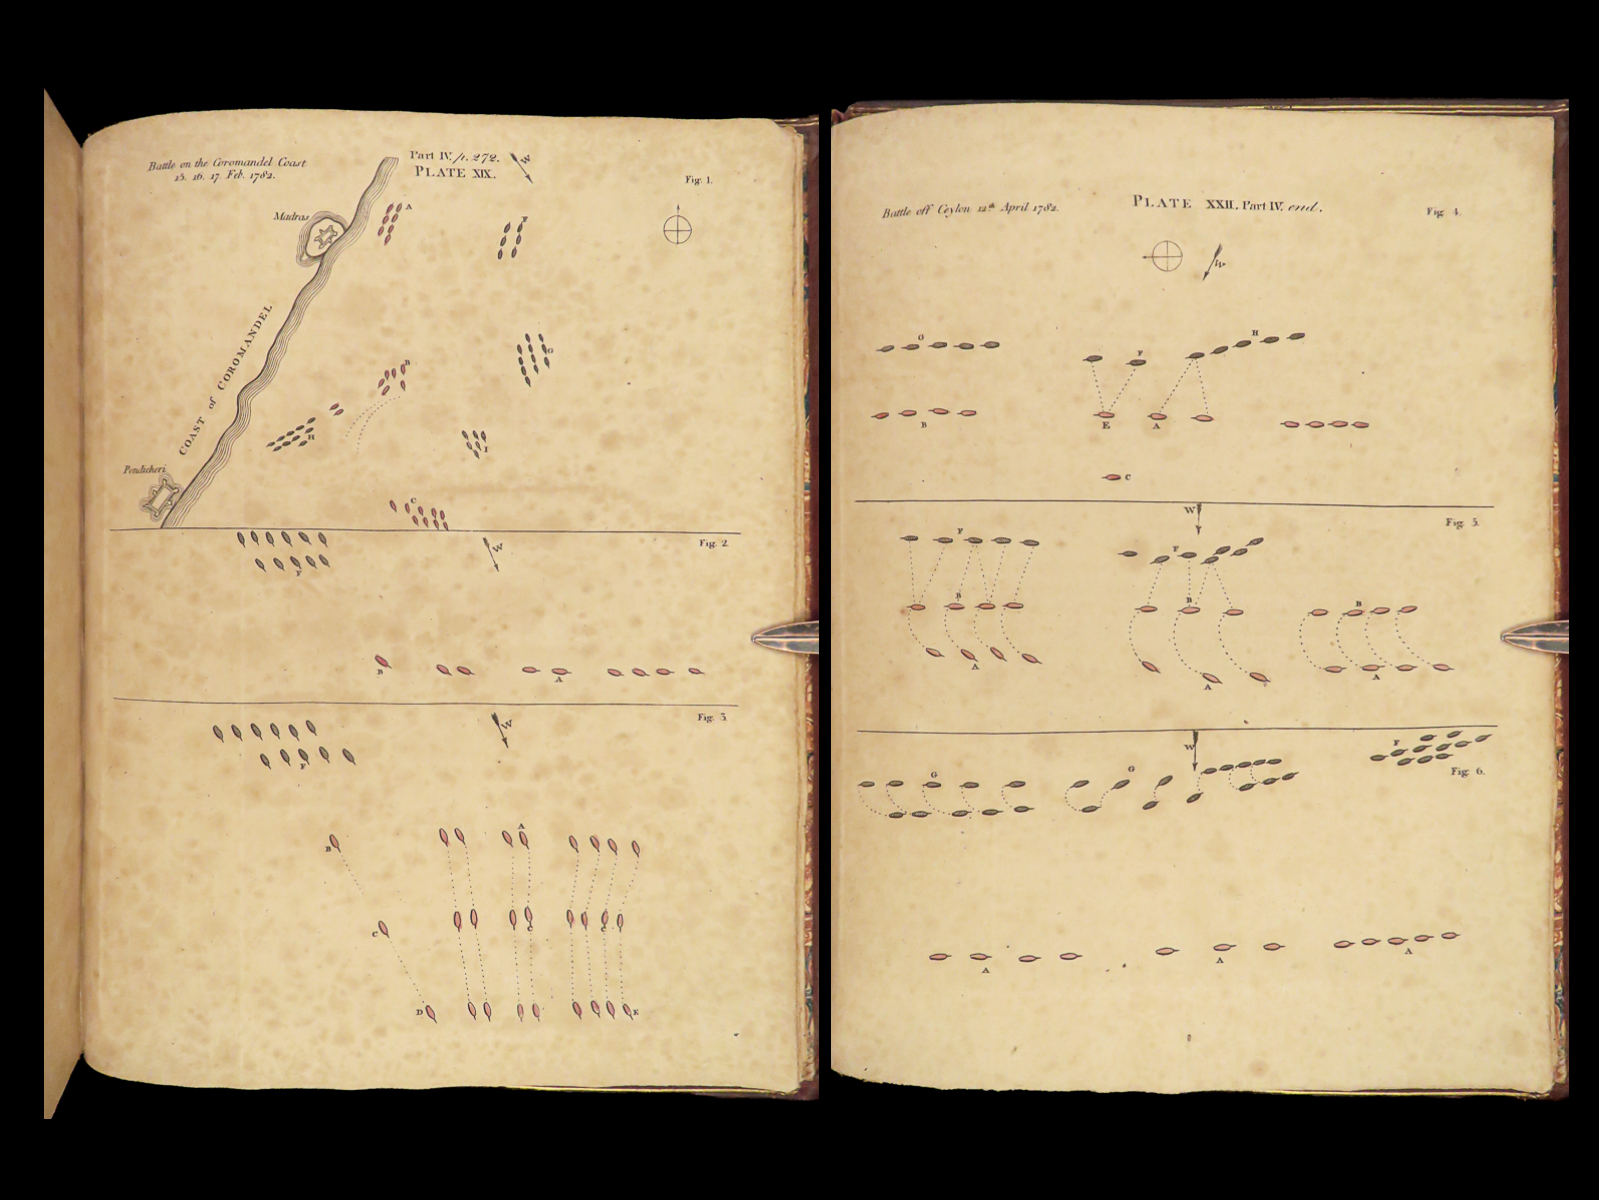 Battle on the Coromandel Coast
15. 16. 17. Feb. 1782.
Part IV. p. 272.
PLATE XIX.
W
Fig. 1.
Madras
A
F
COAST of COROMANDEL
G
B
H
I
Pondicheri
C
Fig. 2.
W
F
B
A
Fig. 3.
W
F
B
A
C
C
C
D
E
Battle off Ceylon 12th April 1782.
PLATE XXII. Part IV. end.
Fig. 4.
W
G
F
H
B
E
A
C
W
Fig. 5.
F
F
B
B
B
A
A
A
W
F
G
G
Fig. 6.
A
A
A